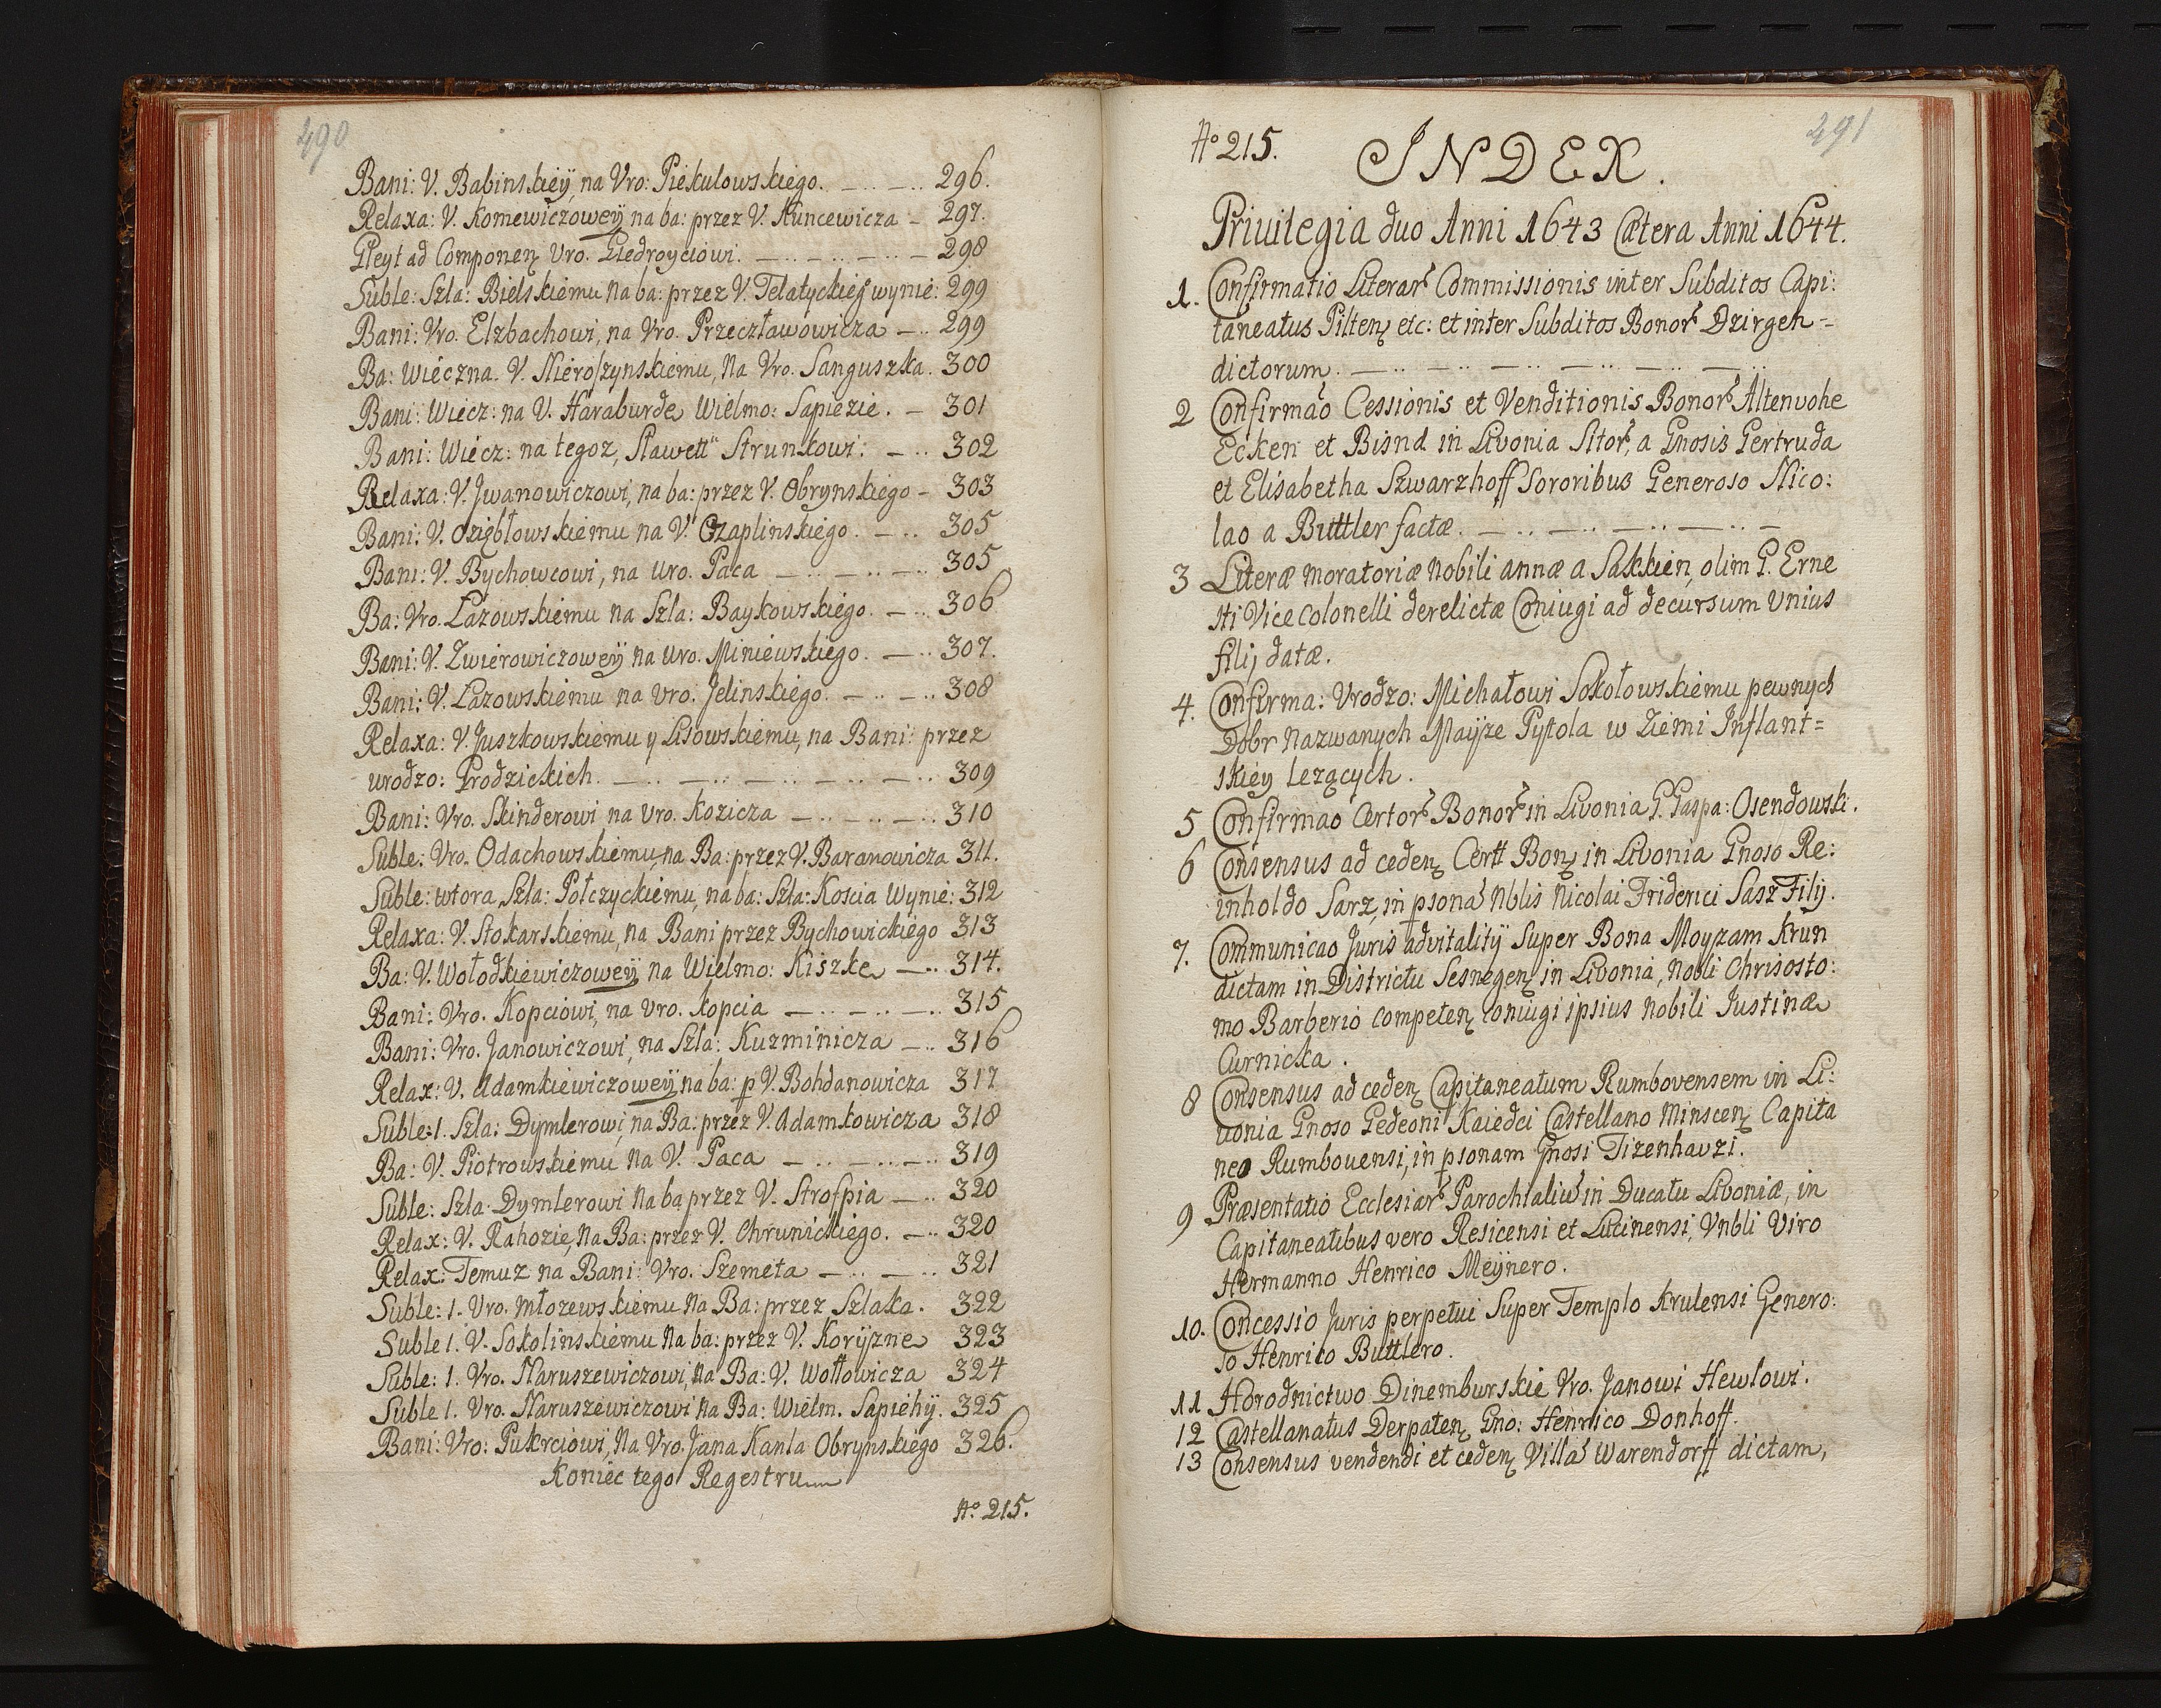 490
Bani: V. Babinskieÿ, na Vro: Piekulowskiego. — .. — .. 296.
Relaxa: V. Komewiczoweÿ na ba: przez V. Kuncewicza – 297.
Gleyt ad Componen Vro. Giedroyciowi. — .. — .. — .. — 298
Suble: Szla: Bielskiemu na ba: przez V. Telatyckieg wynie: 299
Bani: Vro. Elzbachowi, na Vro. Przecztawowicza — .. 299
Ba: Wieczna. V. Nieroszynskiemu, Na Vro. Sanguszka. 300
Bani: Wiecz: na V. Haraburde Wielmo: Sapiezie. — 301
Bani: Wiecz: na tegoz, Sławett Strunkowi: — .. 302
Relaxa: V. Jwanowiczowi, na ba: przez V. Obrynskiego – 303
Bani: V. Oziębłowskiemu na V. Czaplinskiego. — .. 305
Bani: V. Bychowcowi, na Uro. Paca — .. — .. — .. 305
Ba: Vro. Lazowskiemu na Szla: Baykowskiego. — .. 306
Bani: V. Zwierowiczoweÿ na Uro. Miniewskiego. — .. 307.
Bani: V. Lazowskiemu na Vro. Jelinskiego. — .. — .. 308
Relaxa: V. Juszkowskiemu y Lisowskiemu, na Bani: przez
urodzo: Grodzickich. — .. — .. — .. — .. — .. 309
Bani: Vro. Skinderowi na Vro. Kozicza — .. — .. — .. 310
Suble: Vro. Odachowskiemu, na Ba: przez V. Baranowicza 311.
Suble: wtora, Szla: Połczyckiemu, na ba: Szla: Koscia Wynie: 312
Relaxa: V. Stokarskiemu, na Bani przez Bychowickiego 313
Ba: V. Wołodkiewiczoweÿ na Wielmo: Kiszke — .. 314.
Bani: Vro. Kopciowi, na Vro. Kopcia — .. — .. — .. 315
Bani: Vro. Janowiczowi, na Szla: Kuzminicza — .. 316
Relax: V. Adamkiewiczoweÿ na ba: p V. Bohdanowicza 317
Suble: 1. Szla: Dymlerowi, na Ba: przez V. Adamkowicza 318
Ba: V. Piotrowskiemu Na V. Paca — .. — .. — .. 319
Suble: Szla: Dymlerowi Na ba przez V. Strospia — .. 320
Relax: V. Rahozie, Na Ba: przez V. Chrunickiego. — .. 320
Relax: Temuz na Bani: Vro. Szemeta — .. — .. 321
Suble: 1. Vro. Młozewskiemu Na Ba: przez Szlaka. 322
Suble 1. V. Sokolinskiemu Na ba: przez V. Korÿzne 323
Suble: 1. Vro. Naruszewiczowi, Na Ba: V. Wołłowicza 324
Suble 1. Vro. Naruszewiczowi Na Ba: Wielm. Sapiehÿ. 325
Bani: Vro: Pukrciowi, Na Vro. Jana Kanla Obrynskiego 326.
Koniec tego Regestru
No. 215.
291
No 215. INDEX.
Priuilegia duo Anni 1643 Cætera Anni 1644.
1. Confirmatio Literar Commissionis inter Subditos Capi:
taneatus Pilten etc: et inter Subditos Bonor Dzirgen-
dictorum. — .. — .. — .. — .. — .. — ..
2 Confirmao Cessionis et Venditionis Bonor Altenvohe
Ecken et Bisnd in Livonia Sitor, a Gnosis Gertruda
et Elisabetha Szwarzhoff Sororibus Generoso Nico:
lao a Buttler factæ. — .. — .. — .. — .. —
3 Literæ moratoriæ Nobili annæ a Sakkien, olim G. Erne
sti Vice Colonelli derelictæ Coniugi ad decursum Unius
filij datæ.
4. Confirma: Vrodzo: Michałowi Sokołowskiemu pewnych
Dobr Nazwanych Maÿze Pystola w Ziemi Inflant=
skiey lezących.
5 Confirmao Certor Bonor in Livonia G. Gaspa: Osendowski.
6 Consensus ad ceden Certt Bon in Livonia Gnoso Re:
inholdo Sarz, in psona Nblis Nicolai Friderici Sasz Filij.
7. Communicao Juris advitalitÿ Super Bona Moyzam Krun
dictam in Districtu Sesnegen in Livonia, Nobli Chrisosto:
mo Barberio competen coniugi ipsius Nobili Justinæ
Curnicka.
8 Consensus ad ceden Capitaneatum Rumbovensem in Li:
uonia Gnoso Gedeoni Kaiedci Castellano Minscen Capita
neo Rumbouensi, in psonam Gnosi Tizenhauzi.
9 Præsentatio Ecclesiar Parochialiu in Ducatu Livoniæ, in
Capitaneatibus vero Resicensi et Lucinensi, Vnbli Viro
Hermanno Henrico Meÿnero.
10. Concessio Juris perpetui Super Templo Krulensi Genero:
so Henrico Buttlero.
11 Horodnictwo Dinemburskie Vro. Janowi Hewlowi.
12 Castellanatus Derpaten Gno: Henrico Donhoff.
13 Consensus vendendi et ceden Villa Warendorff dictam,